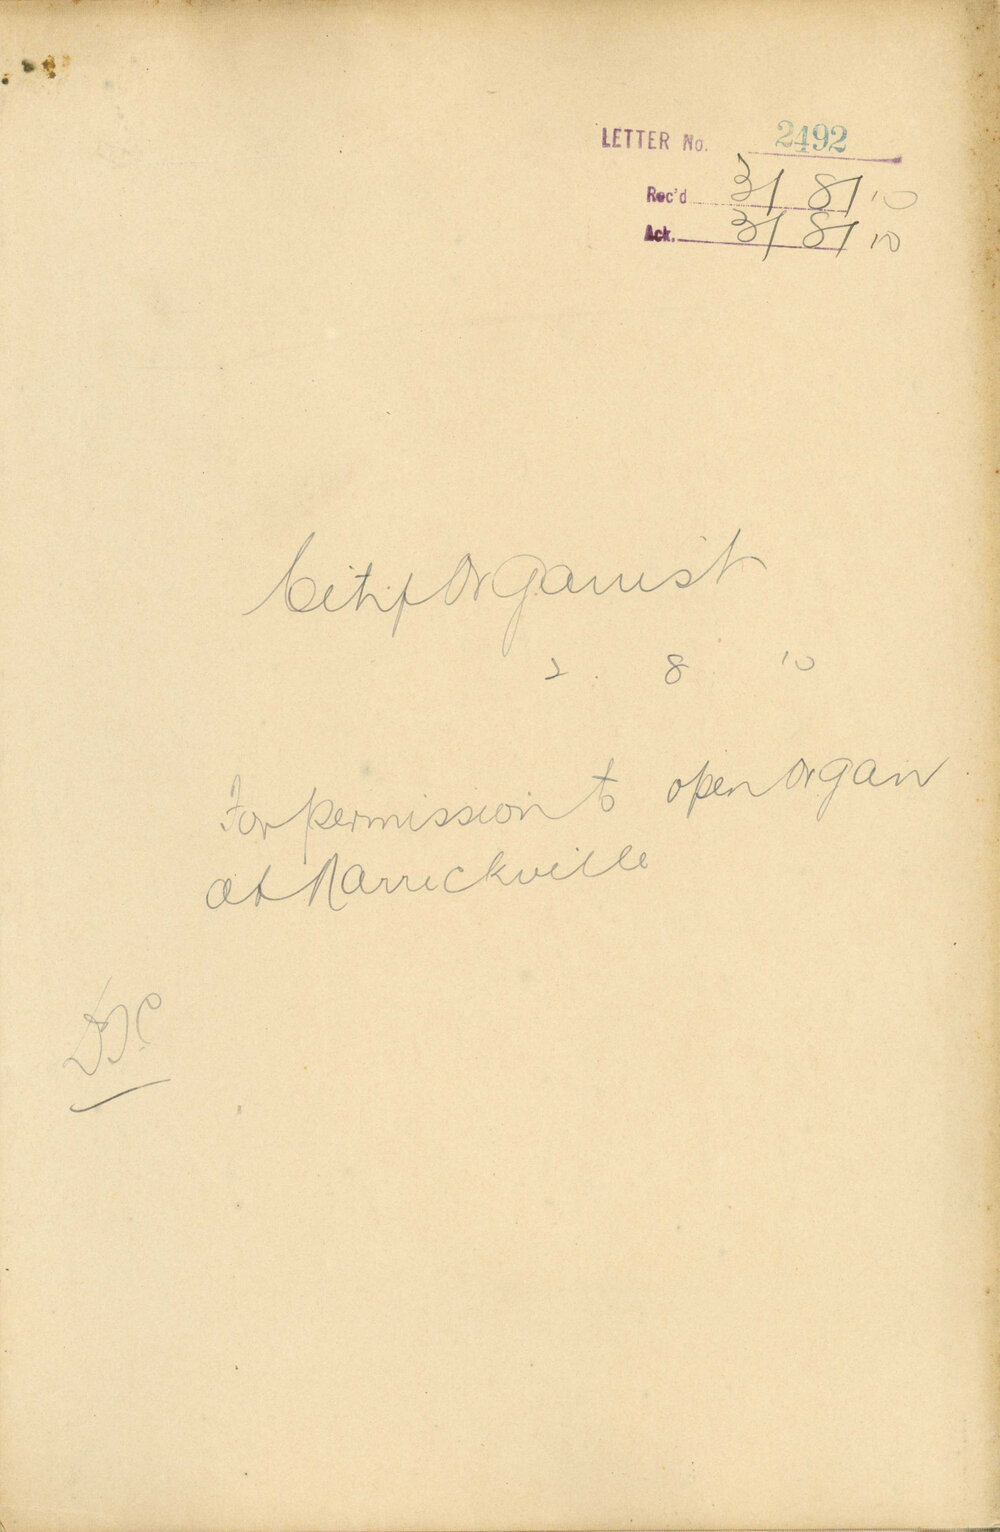 LETTER No. 2492
Rec'd 3/8/10
Ack. 3/8/10
City Organist
2. 8. 10
For permission to open Organ
at Marrickville